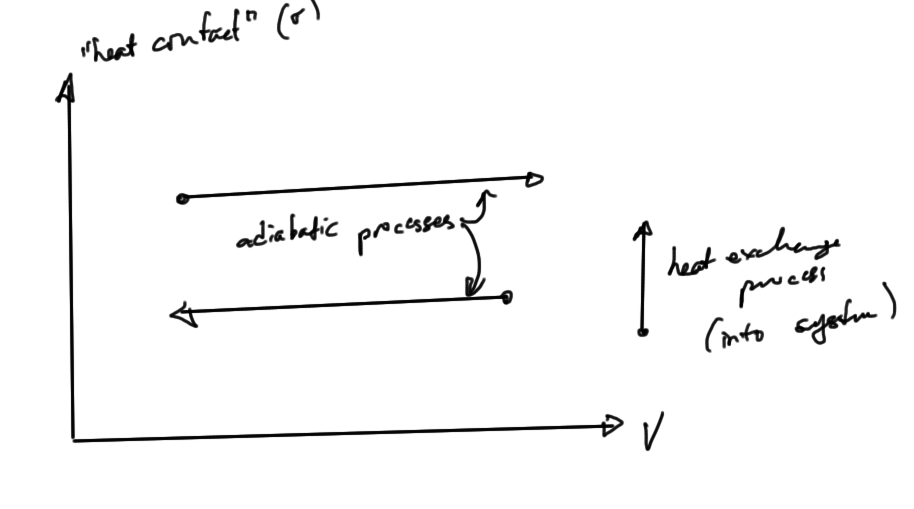 "heat contact" (σ)
adiabatic processes
heat exchange
process
(into system)
V